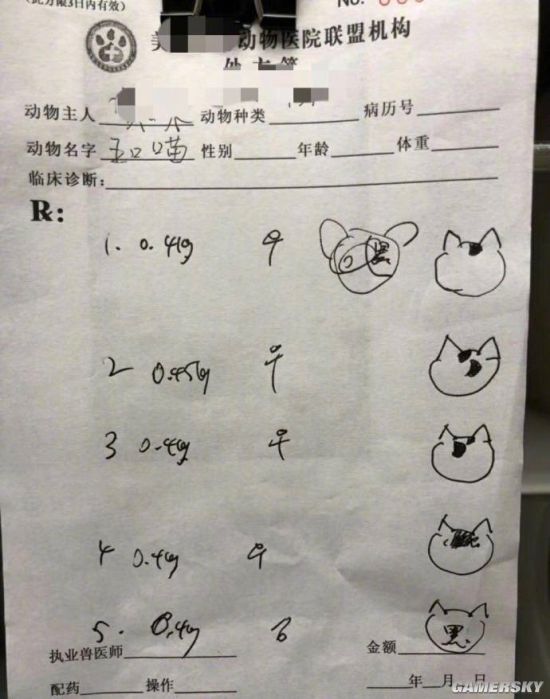 (此方限3日内有效)
No.
美 动物医院联盟机构
处方笺
动物主人 动物种类 病历号
动物名字 喵 性别 年龄 体重
临床诊断:
R:
1. 0.41g ♀ 黑
2 0.45g ♀
3 0.4g ♀
4 0.4g ♀
5. 0.4g 黑
执业兽医师 金额
配药 操作 年 月 日
GAMERSKY